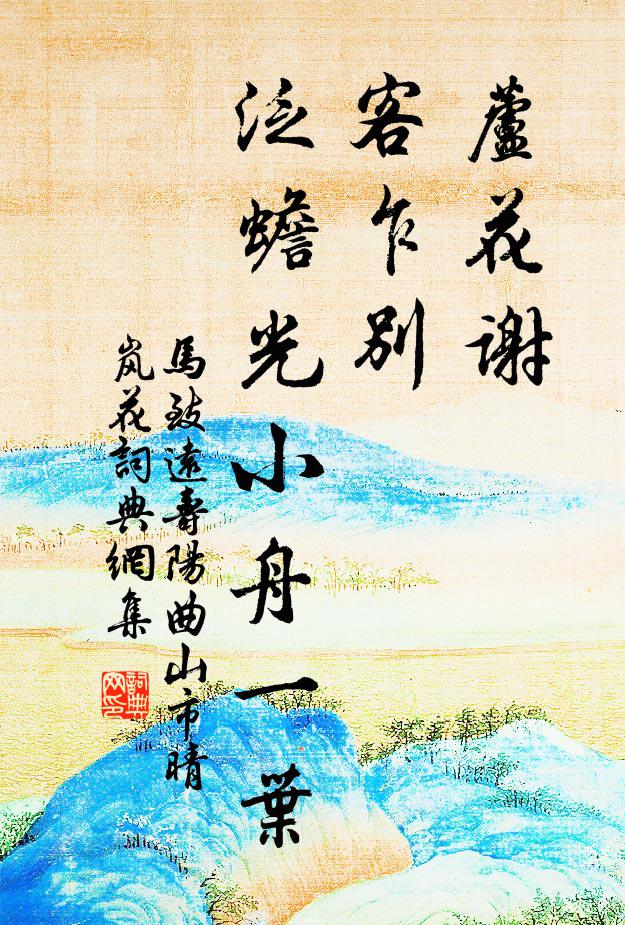 蘆花謝
客乍別
泛蟾光小舟一葉
馬致遠壽陽曲山市晴
嵐花詞典網集
詞典網印